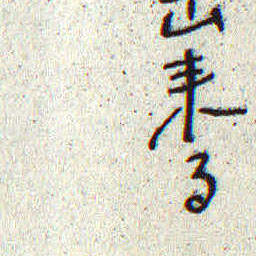 出来る